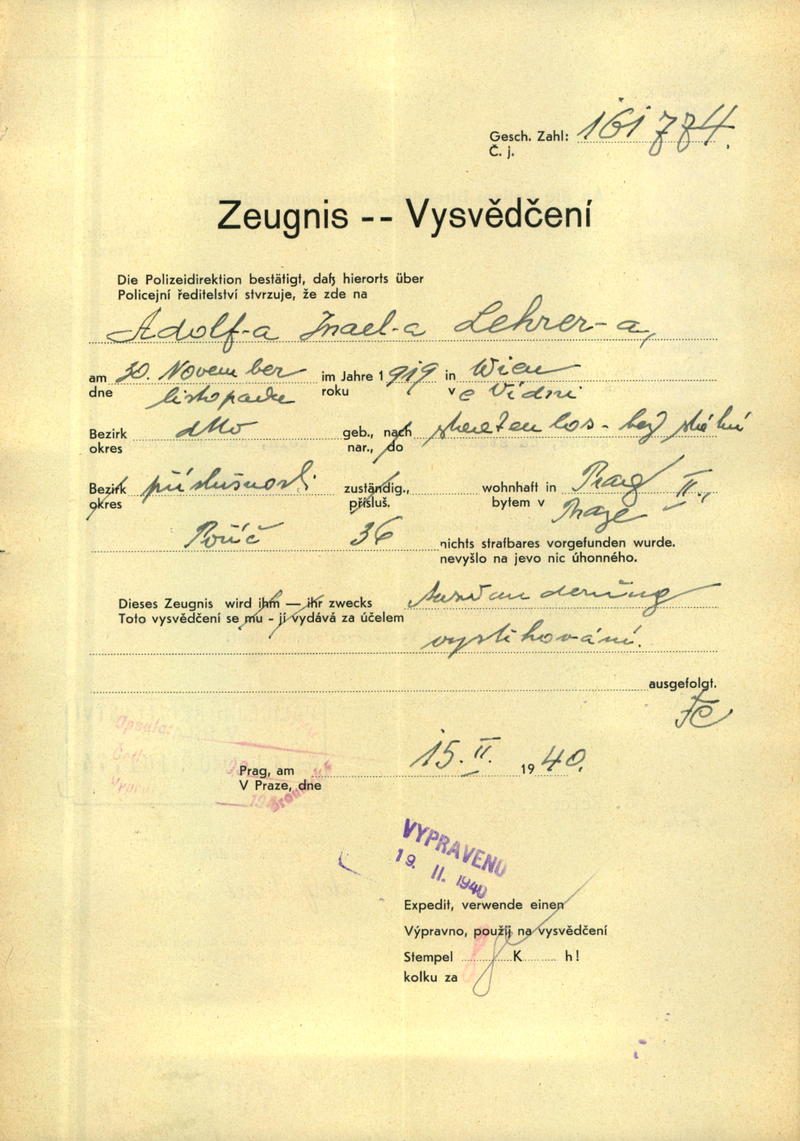 Gesch. Zahl: 161774.
Č. j.
Zeugnis -- Vysvědčení
Die Polizeidirektion bestätigt, daß hierorts über
Policejní ředitelství stvrzuje, že zde na
Adolf-a Israel-a Lehrer-a,
am 30. November im Jahre 1919 in Wien
dne listopadu roku ve Vídni
Bezirk dtto geb., nach staatenlos - bez státní
okres nar., do
Bezirk příslušnosti zuständig., wohnhaft in Prag II.,
okres přísluš. bytem v Praze
Poříč 36 nichts strafbares vorgefunden wurde.
nevyšlo na jevo nic úhonného.
Dieses Zeugnis wird ihm — ihr zwecks Auswanderung
Toto vysvědčení se mu - jí vydává za účelem
vystěhování.
ausgefolgt.
Prag, am 15. II. 1940.
V Praze, dne
VYPRAVENO
19. II. 1940
Expedit, verwende einen
Výpravno, použij na vysvědčení
Stempel K h!
kolku za